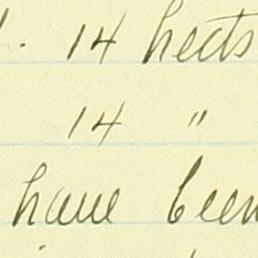 14 hects
14 "
have been